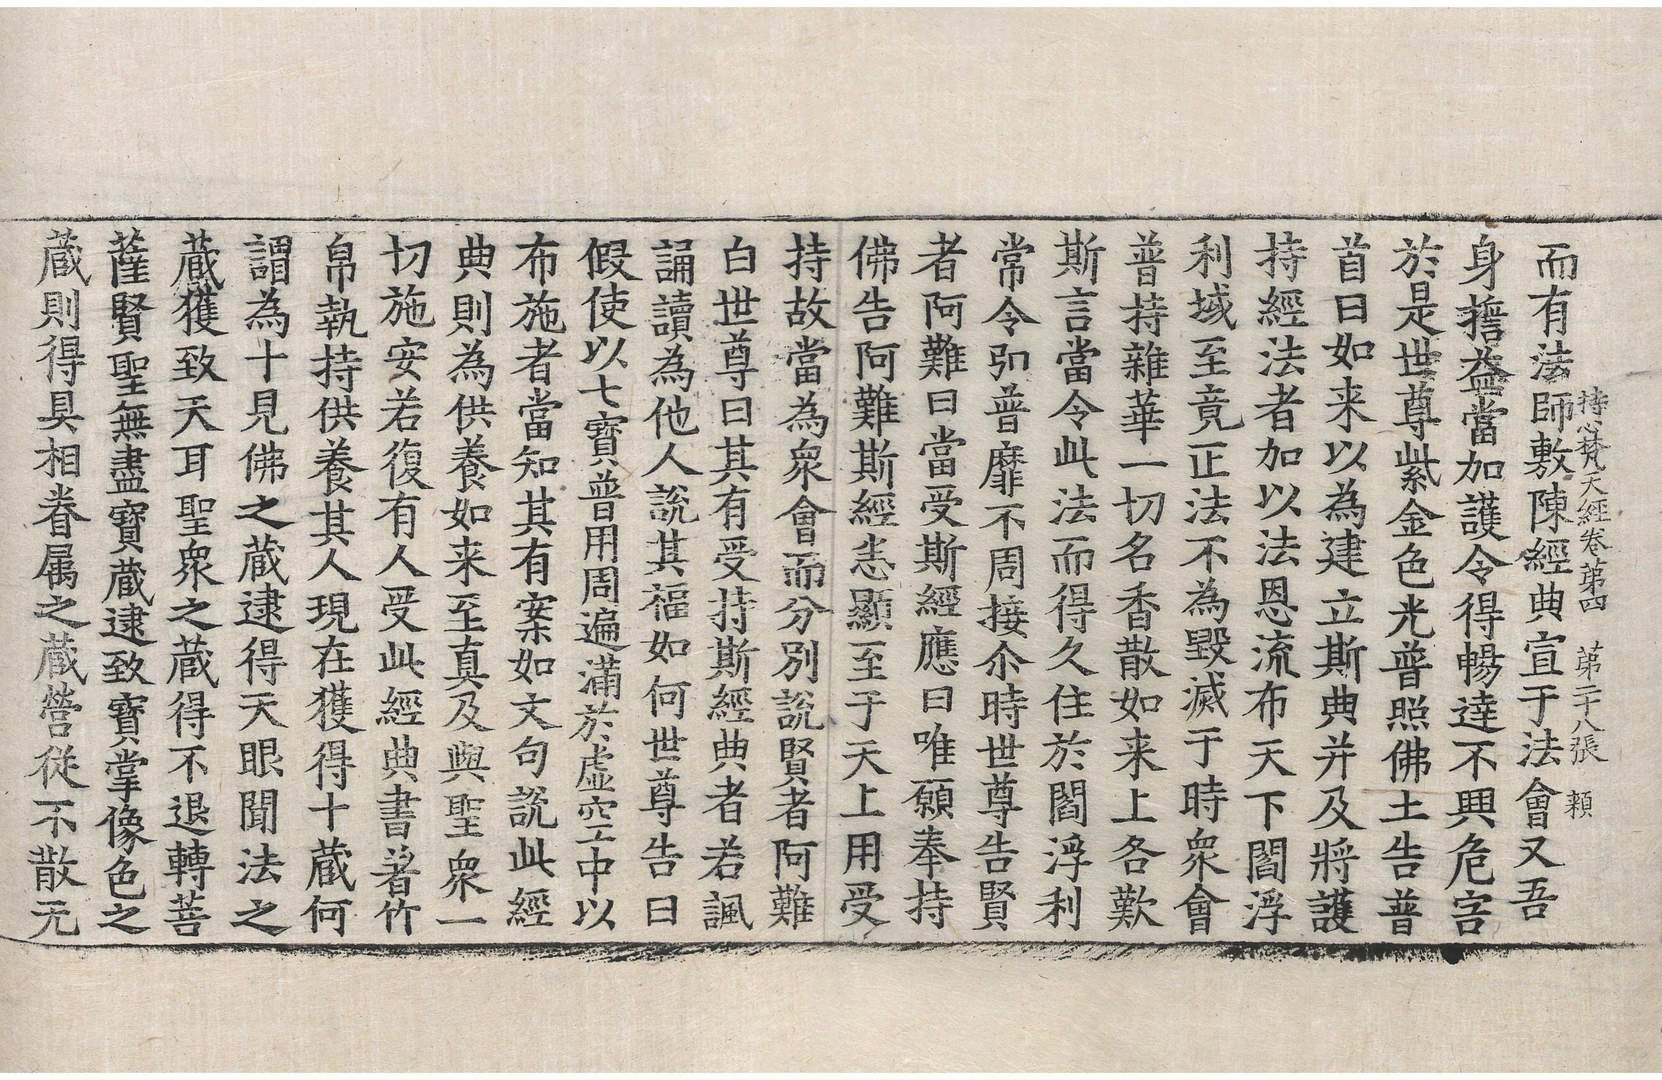 而有法師敷陳經典宣于法會又吾
持心梵天經卷第四　第二十八張　頛
身擔益當加護令得暢達不興危害
於是世尊紫金色光普照佛土告普
首曰如来以為建立斯典并及將護
持經法者加以法恩流布天下閻浮
利域至竟正法不為毀滅于時衆會
普持雜華一切名香散如来上各歎
斯言當令此法而得久住於閻浮利
常令弘普靡不周接尒時世尊告賢
者阿難曰當受斯經應曰唯願奉持
佛告阿難斯經恙顯至于天上用受
持故當為衆會而分別說賢者阿難
白世尊曰其有受持斯經典者若諷
誦讀為他人說其福如何世尊告曰
假使以七寶普用周遍滿於虛空中以
布施者當知其有案如文句說此經
典則為供養如来至真及與聖衆一
切施安若復有人受此經典書著竹
帛執持供養其人現在獲得十蔵何
謂為十見佛之蔵逮得天眼聞法之
蔵獲致天耳聖衆之蔵得不退轉菩
薩賢聖無盡寶蔵逮致寶掌像色之
蔵則得具相眷属之蔵營從不散无